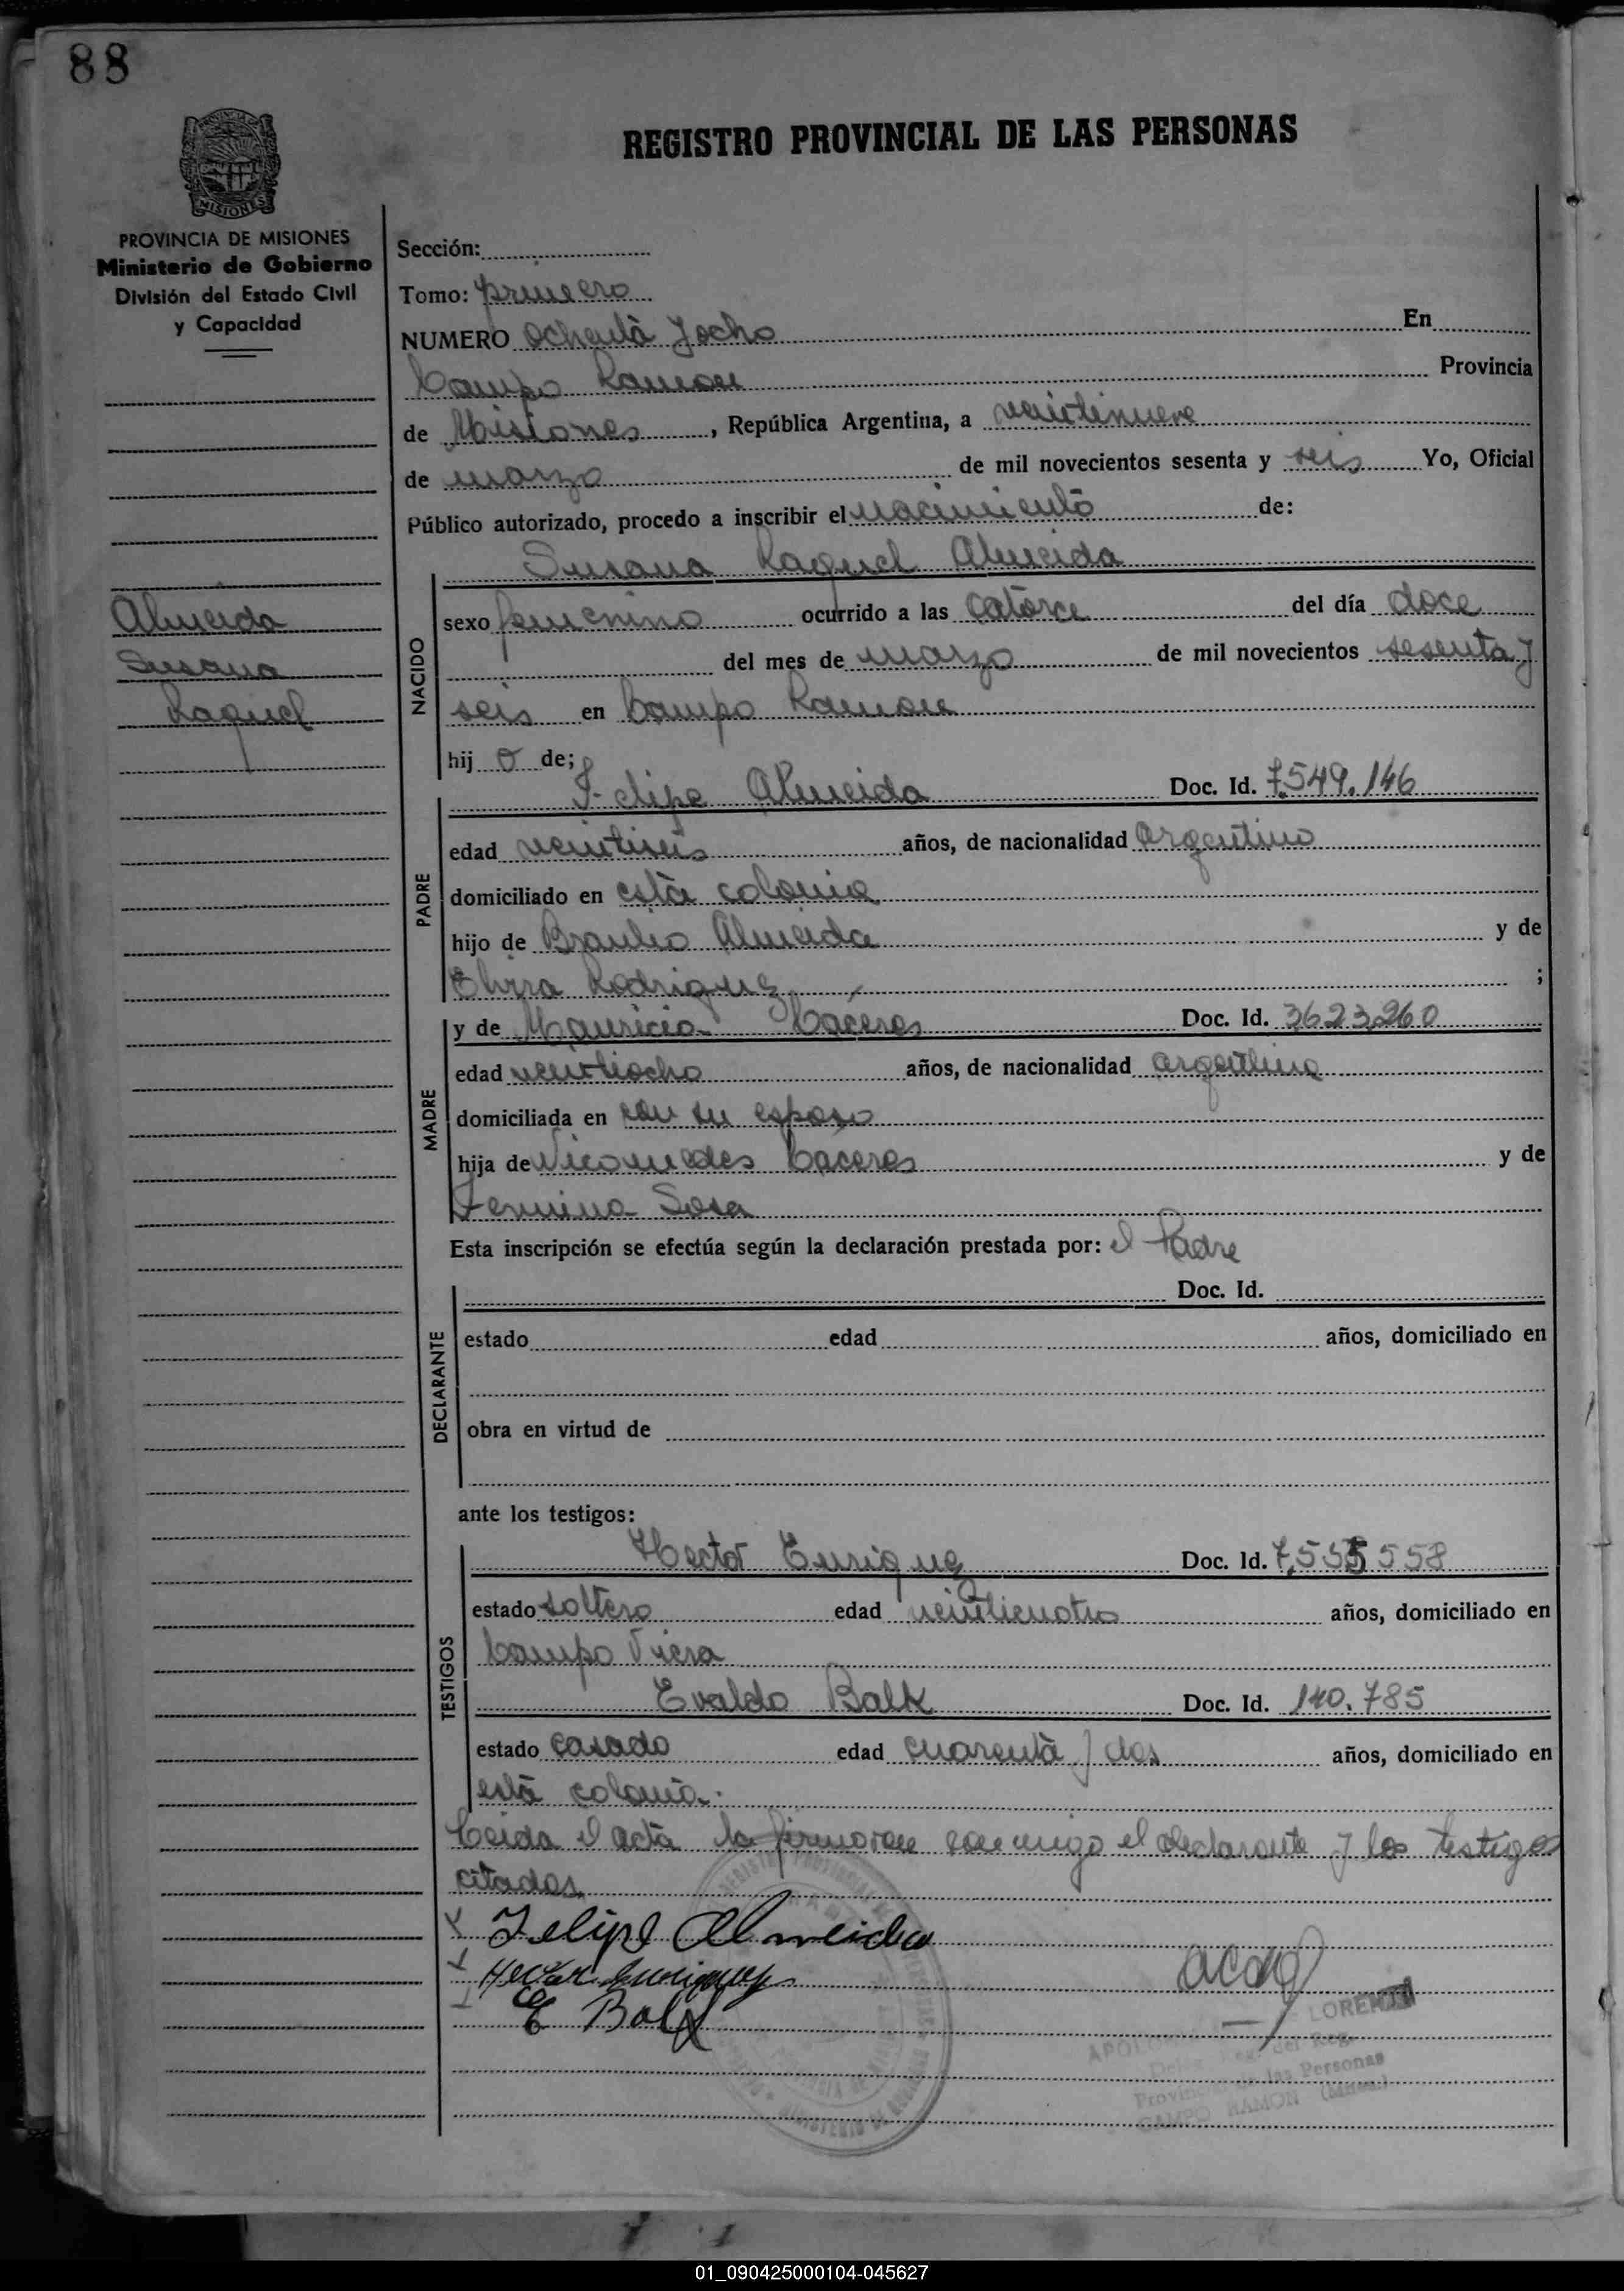 88
REGISTRO PROVINCIAL DE LAS PERSONAS
MISIONES
PROVINCIA DE MISIONES
Ministerio de Gobierno
División del Estado Civil
y Capacidad
Sección:
Tomo: primero
NUMERO ochenta y ocho En
Campo Ramon Provincia
de Misiones, República Argentina, a veintinueve
de marzo de mil novecientos sesenta y seis Yo, Oficial
Público autorizado, procedo a inscribir el nacimiento de:
Susana Raquel Almeida
Almeida
Susana
Raquel
NACIDO
sexo femenino ocurrido a las catorce del día doce
del mes de marzo de mil novecientos sesenta y
seis en Campo Ramon
hij o de;
PADRE
Felipe Almeida Doc. Id. 7.549.146
edad veintiseis años, de nacionalidad argentino
domiciliado en esta colonia
hijo de Braulio Almeida y de
Elvira Rodriguez ;
MADRE
y de Mauricia Caceres Doc. Id. 3623.260
edad veintiocho años, de nacionalidad argentina
domiciliada en con su esposo
hija de Nicomedes Caceres y de
Fermina Sosa
Esta inscripción se efectúa según la declaración prestada por: el Padre
DECLARANTE
Doc. Id.
estado edad años, domiciliado en
obra en virtud de
ante los testigos:
TESTIGOS
Hector Enriquez Doc. Id. 7.555558
estado soltero edad veinticuatro años, domiciliado en
Campo Viera
Evaldo Balk Doc. Id. 140.785
estado casado edad cuarenta y dos años, domiciliado en
esta colonia.
Leida el acta la firmaron conmigo el declarante y los testigos
citados
Felipe Almeida
Hector Enriquez
E Balk
LORENZ
Provin de las Personas
CAMPO RAMON (Mnes.)
01_090425000104-045627